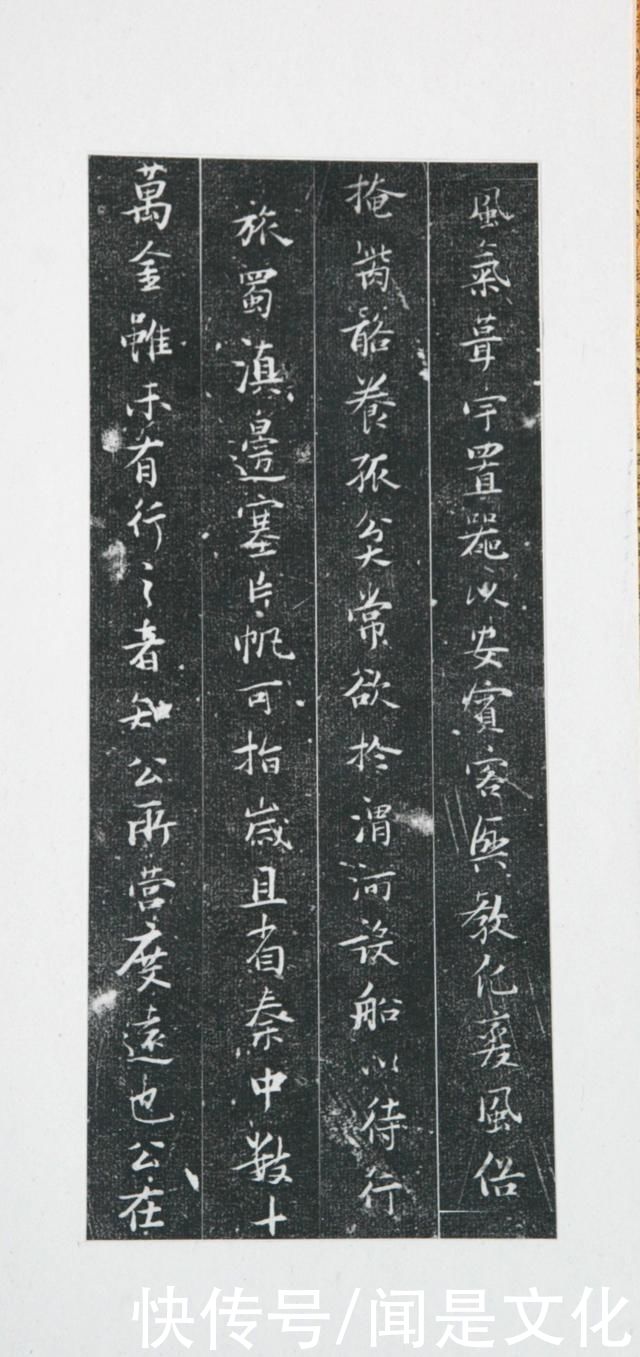 風氣葺宇置器以安賓客興教化變風俗
掩胔骼養孤㷊常欲於渭河設船以待行
旅蜀滇邊塞片帆可指歲且省秦中數十
萬金雖未有行之者知公所营度遠也公在
快传号/闻是文化